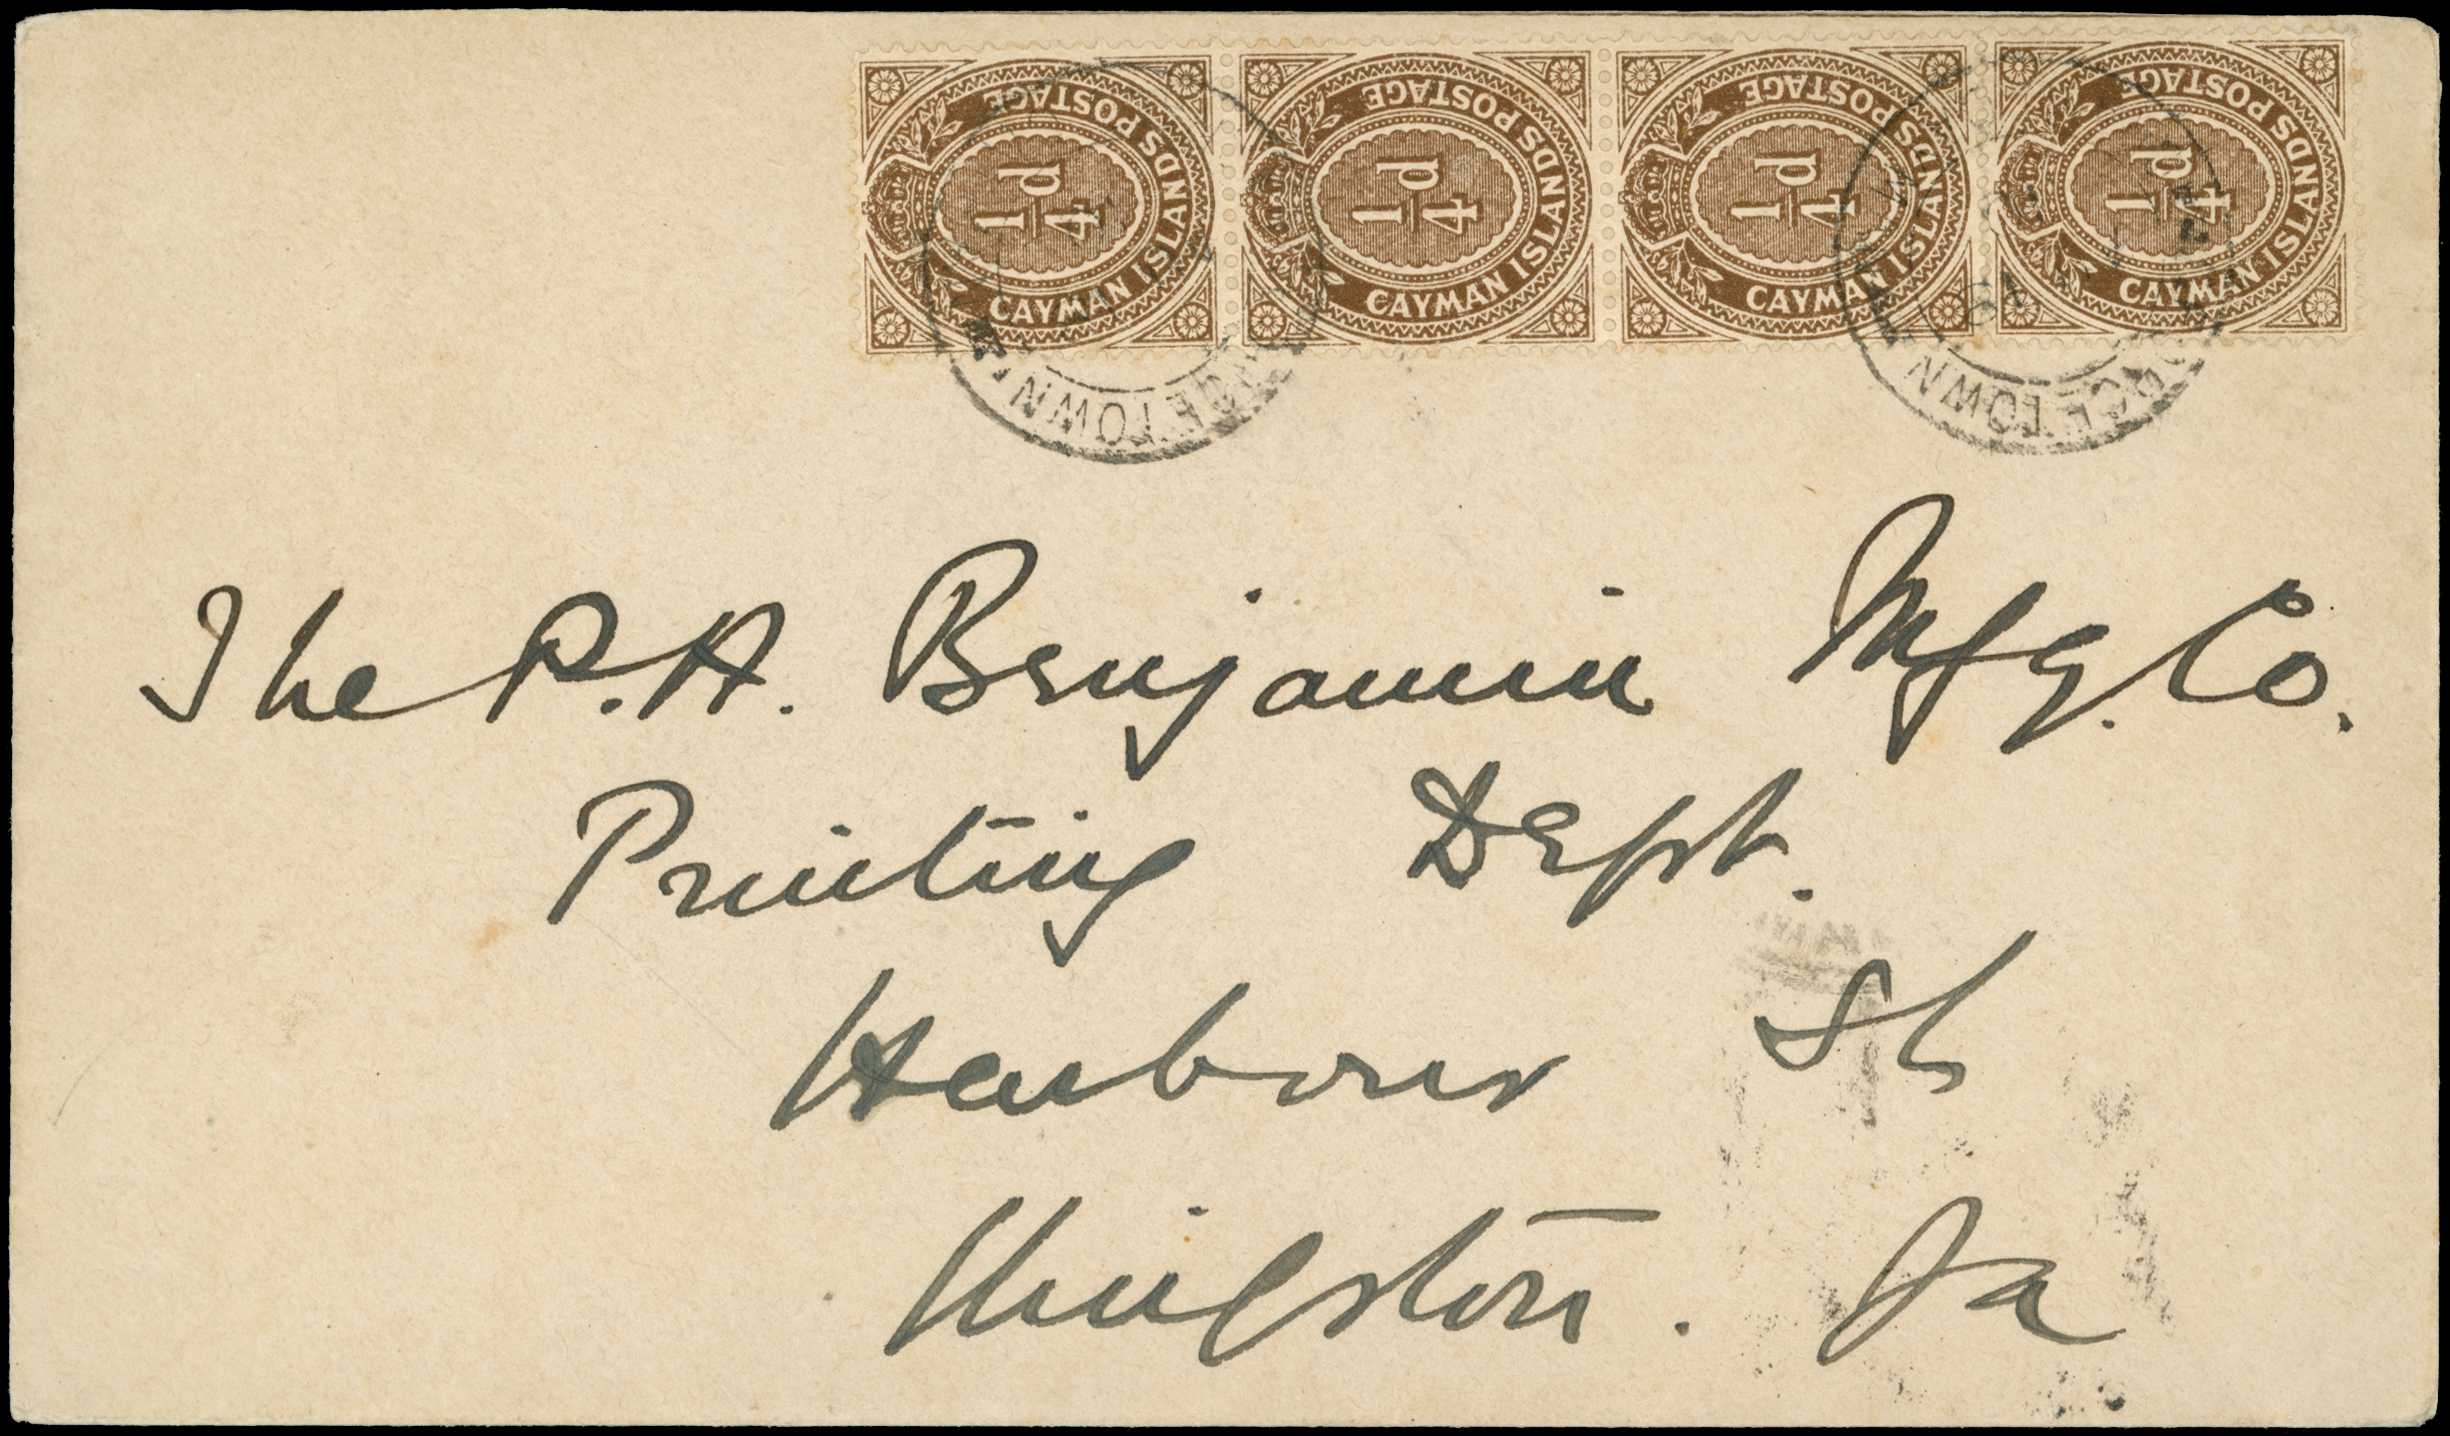 CAYMAN ISLANDS POSTAGE
1/4 d
CAYMAN ISLANDS POSTAGE
1/4 d
CAYMAN ISLANDS POSTAGE
1/4 d
CAYMAN ISLANDS POSTAGE
1/4 d
The P.A. Benjamin Mfg. Co.
Printing Dept.
Harbour St
Kingston. Ja